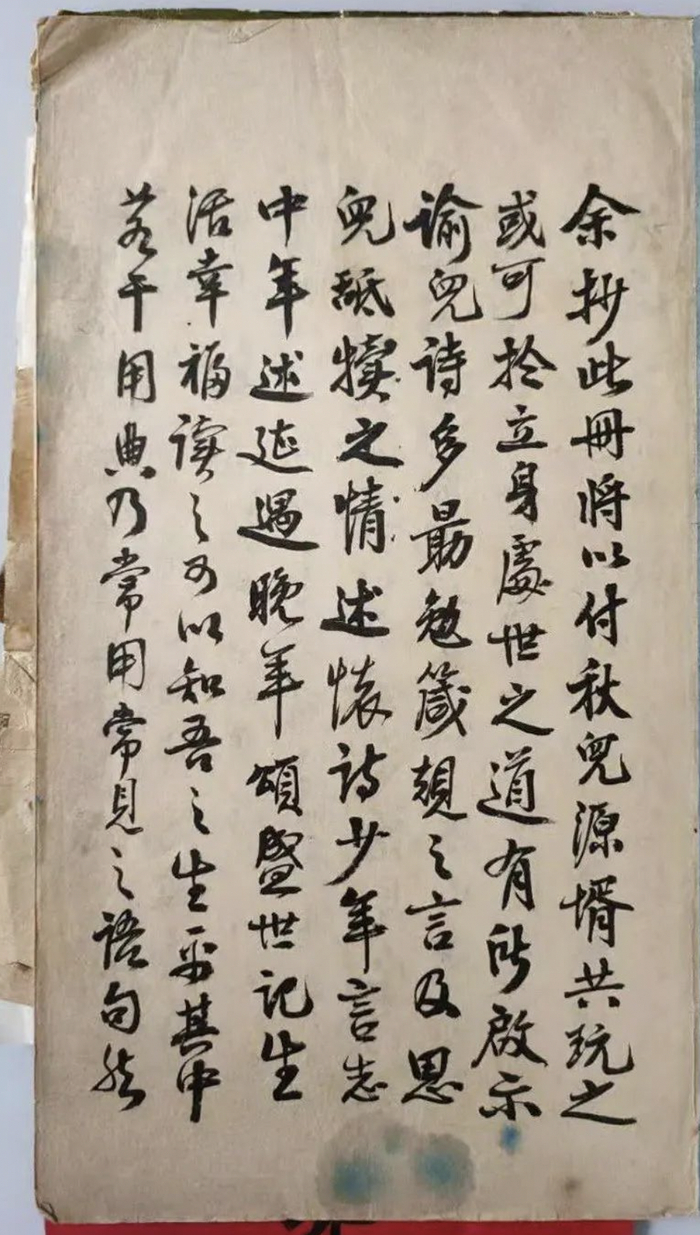 余抄此册将以付秋兒源壻共玩之
或可於立身處世之道有所啟示
谕兒诗多勗勉箴規之言及思
兒舐犊之情述懷诗少年言志
中年述遭遇晚年頌盛世记生
活幸福读之可以知吾之生平其中
若干用典乃常用常見之语句然